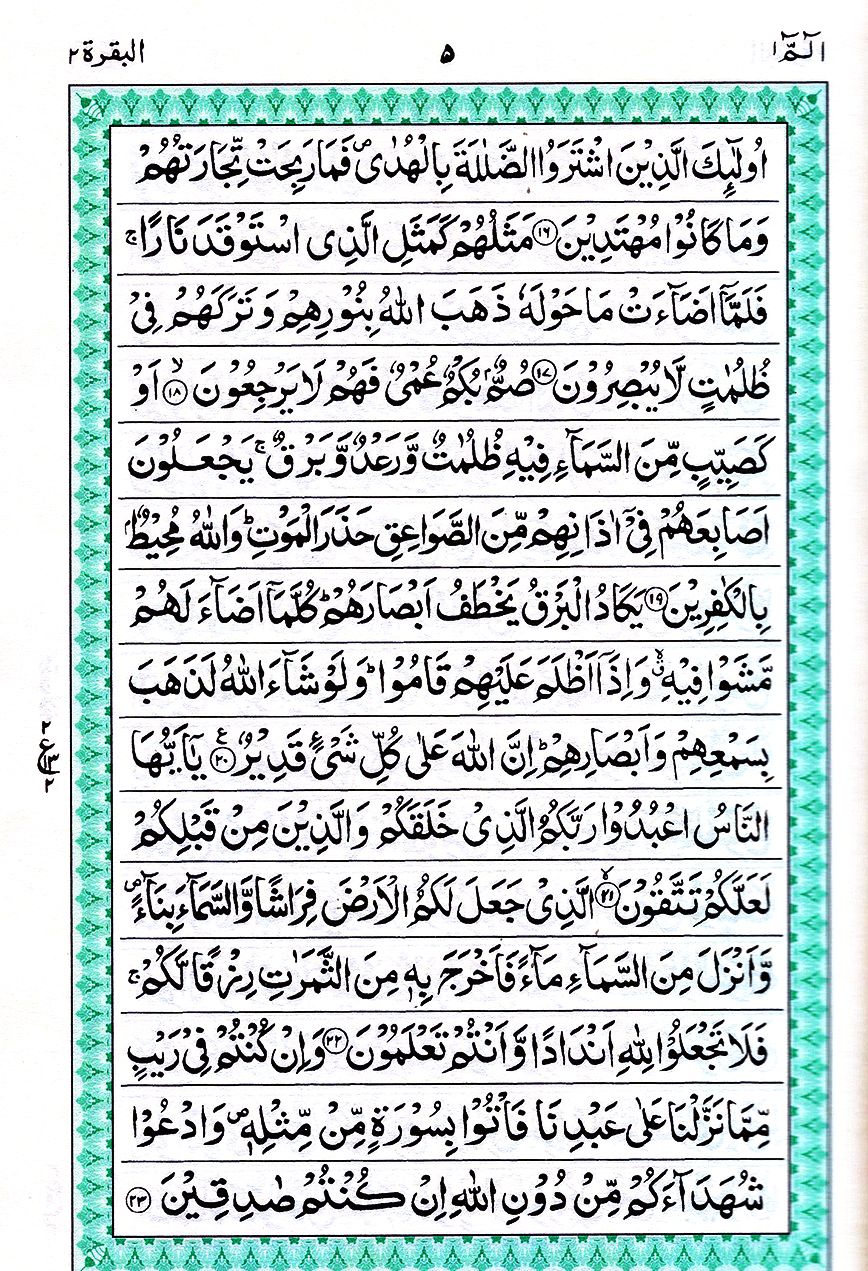 الٓمّٓ ١ ٥ البقرة ٢
اُولٰٓئِكَ الَّذِيْنَ اشْتَرَوُا الضَّلٰلَةَ بِالْهُدٰى ۪ فَمَا رَبِحَتْ تِّجَارَتُهُمْ
وَمَا كَانُوْا مُهْتَدِيْنَ ﴿١٦﴾ مَثَلُهُمْ كَمَثَلِ الَّذِى اسْتَوْقَدَ نَارًا ۚ
فَلَمَّاۤ اَضَآءَتْ مَا حَوْلَهٗ ذَهَبَ اللّٰهُ بِنُوْرِهِمْ وَتَرَكَهُمْ فِىْ
ظُلُمٰتٍ لَّا يُبْصِرُوْنَ ﴿١٧﴾ صُمٌّۢ بُكْمٌ عُمْىٌ فَهُمْ لَا يَرْجِعُوْنَ ۙ﴿١٨﴾ اَوْ
كَصَيِّبٍ مِّنَ السَّمَآءِ فِيْهِ ظُلُمٰتٌ وَّرَعْدٌ وَّبَرْقٌ ۚ يَجْعَلُوْنَ
اَصَابِعَهُمْ فِىْۤ اٰذَانِهِمْ مِّنَ الصَّوَاعِقِ حَذَرَ الْمَوْتِ ؕ وَاللّٰهُ مُحِيْطٌۢ
بِالْكٰفِرِيْنَ ﴿١٩﴾ يَكَادُ الْبَرْقُ يَخْطَفُ اَبْصَارَهُمْ ؕ كُلَّمَاۤ اَضَآءَ لَهُمْ
مَّشَوْا فِيْهِ ۙۗ وَاِذَاۤ اَظْلَمَ عَلَيْهِمْ قَامُوْا ؕ وَلَوْ شَآءَ اللّٰهُ لَذَهَبَ
بِسَمْعِهِمْ وَاَبْصَارِهِمْ ؕ اِنَّ اللّٰهَ عَلٰى كُلِّ شَىْءٍ قَدِيْرٌ ﴿٢٠﴾ يٰۤاَيُّهَا
ع ٢ ١٣ ٢
النَّاسُ اعْبُدُوْا رَبَّكُمُ الَّذِىْ خَلَقَكُمْ وَالَّذِيْنَ مِنْ قَبْلِكُمْ
لَعَلَّكُمْ تَتَّقُوْنَ ۙ﴿٢١﴾ الَّذِىْ جَعَلَ لَكُمُ الْاَرْضَ فِرَاشًا وَّالسَّمَآءَ بِنَآءً ۪
وَّاَنْزَلَ مِنَ السَّمَآءِ مَآءً فَاَخْرَجَ بِهٖ مِنَ الثَّمَرٰتِ رِزْقًا لَّكُمْ ۚ
فَلَا تَجْعَلُوْا لِلّٰهِ اَنْدَادًا وَّاَنْتُمْ تَعْلَمُوْنَ ﴿٢٢﴾ وَاِنْ كُنْتُمْ فِىْ رَيْبٍ
مِّمَّا نَزَّلْنَا عَلٰى عَبْدِنَا فَاْتُوْا بِسُوْرَةٍ مِّنْ مِّثْلِهٖ ۪ وَادْعُوْا
شُهَدَآءَكُمْ مِّنْ دُوْنِ اللّٰهِ اِنْ كُنْتُمْ صٰدِقِيْنَ ﴿٢٣﴾